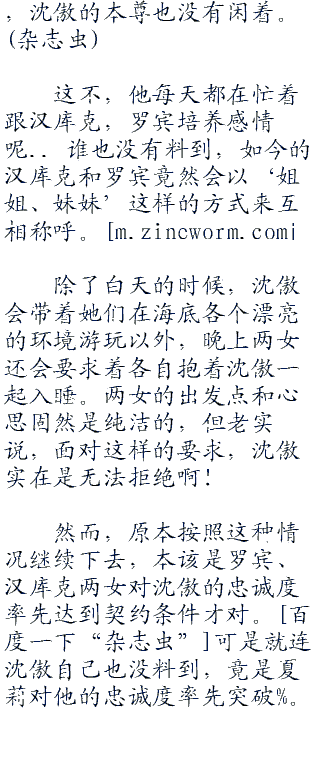 ，沈傲的本尊也没有闲着。
(杂志虫)
这不，他每天都在忙着
跟汉库克，罗宾培养感情
呢.. 谁也没有料到，如今的
汉库克和罗宾竟然会以‘姐
姐、妹妹’这样的方式来互
相称呼。[m.zincworm.com|
除了白天的时候，沈傲
会带着她们在海底各个漂亮
的环境游玩以外，晚上两女
还会要求着各自抱着沈傲一
起入睡。两女的出发点和心
思固然是纯洁的，但老实
说，面对这样的要求，沈傲
实在是无法拒绝啊！
然而，原本按照这种情
况继续下去，本该是罗宾、
汉库克两女对沈傲的忠诚度
率先达到契约条件才对。[百
度一下“杂志虫”]可是就连
沈傲自己也没料到，竟是夏
莉对他的忠诚度率先突破%。